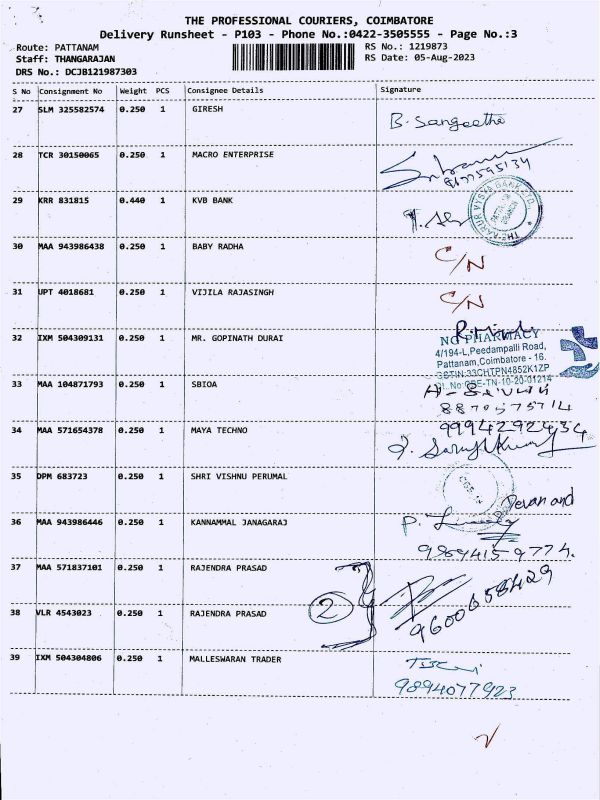 THE PROFESSIONAL COURIERS, COIMBATORE
Delivery Runsheet - P103 - Phone No.:0422-3505555 - Page No.:3
Route: PATTANAM RS No.: 1219873
Staff: THANGARAJAN RS Date: 05-Aug-2023
DRS No.: DCJB121987303
S No Consignment No Weight PCS Consignee Details Signature
27 SLM 325582574 0.250 1 GIRESH B. Sangeetha
28 TCR 30150065 0.250 1 MACRO ENTERPRISE
29 KRR 831815 0.440 1 KVB BANK
THE KARUR VYSYA BANK LTD.
30 MAA 943986438 0.250 1 BABY RADHA C/N
31 UPT 4018681 0.250 1 VIJILA RAJASINGH C/N
32 IXM 504309131 0.250 1 MR. GOPINATH DURAI
NG PHARMACY
4/194-L, Peedampalli Road,
Pattanam, Coimbatore - 16.
GSTIN:33CHTPN4852K1ZP
33 MAA 104871793 0.250 1 SBIOA
8870575714
34 MAA 571654378 0.250 1 MAYA TECHNO 9994292434
35 DPM 683723 0.250 1 SHRI VISHNU PERUMAL Devanand
36 MAA 943986446 0.250 1 KANNAMMAL JANAGARAJ
37 MAA 571837101 0.250 1 RAJENDRA PRASAD
2 9600658429
38 VLR 4543023 0.250 1 RAJENDRA PRASAD
39 IXM 504304806 0.250 1 MALLESWARAN TRADER
9894077923